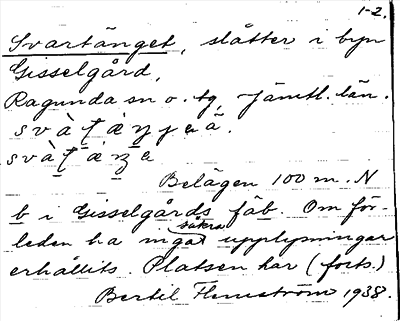 1-2.
Svartänget, slåtter i byn
Gisselgård,
Ragunda sn o. tg, Jämtl. län.
Belägen 100 m. N
b i Gisselgårds fäb. Om för-
leden ha några säkra upplysningar
erhållits. Platsen har (forts.)
Bertil Flemström 1938.